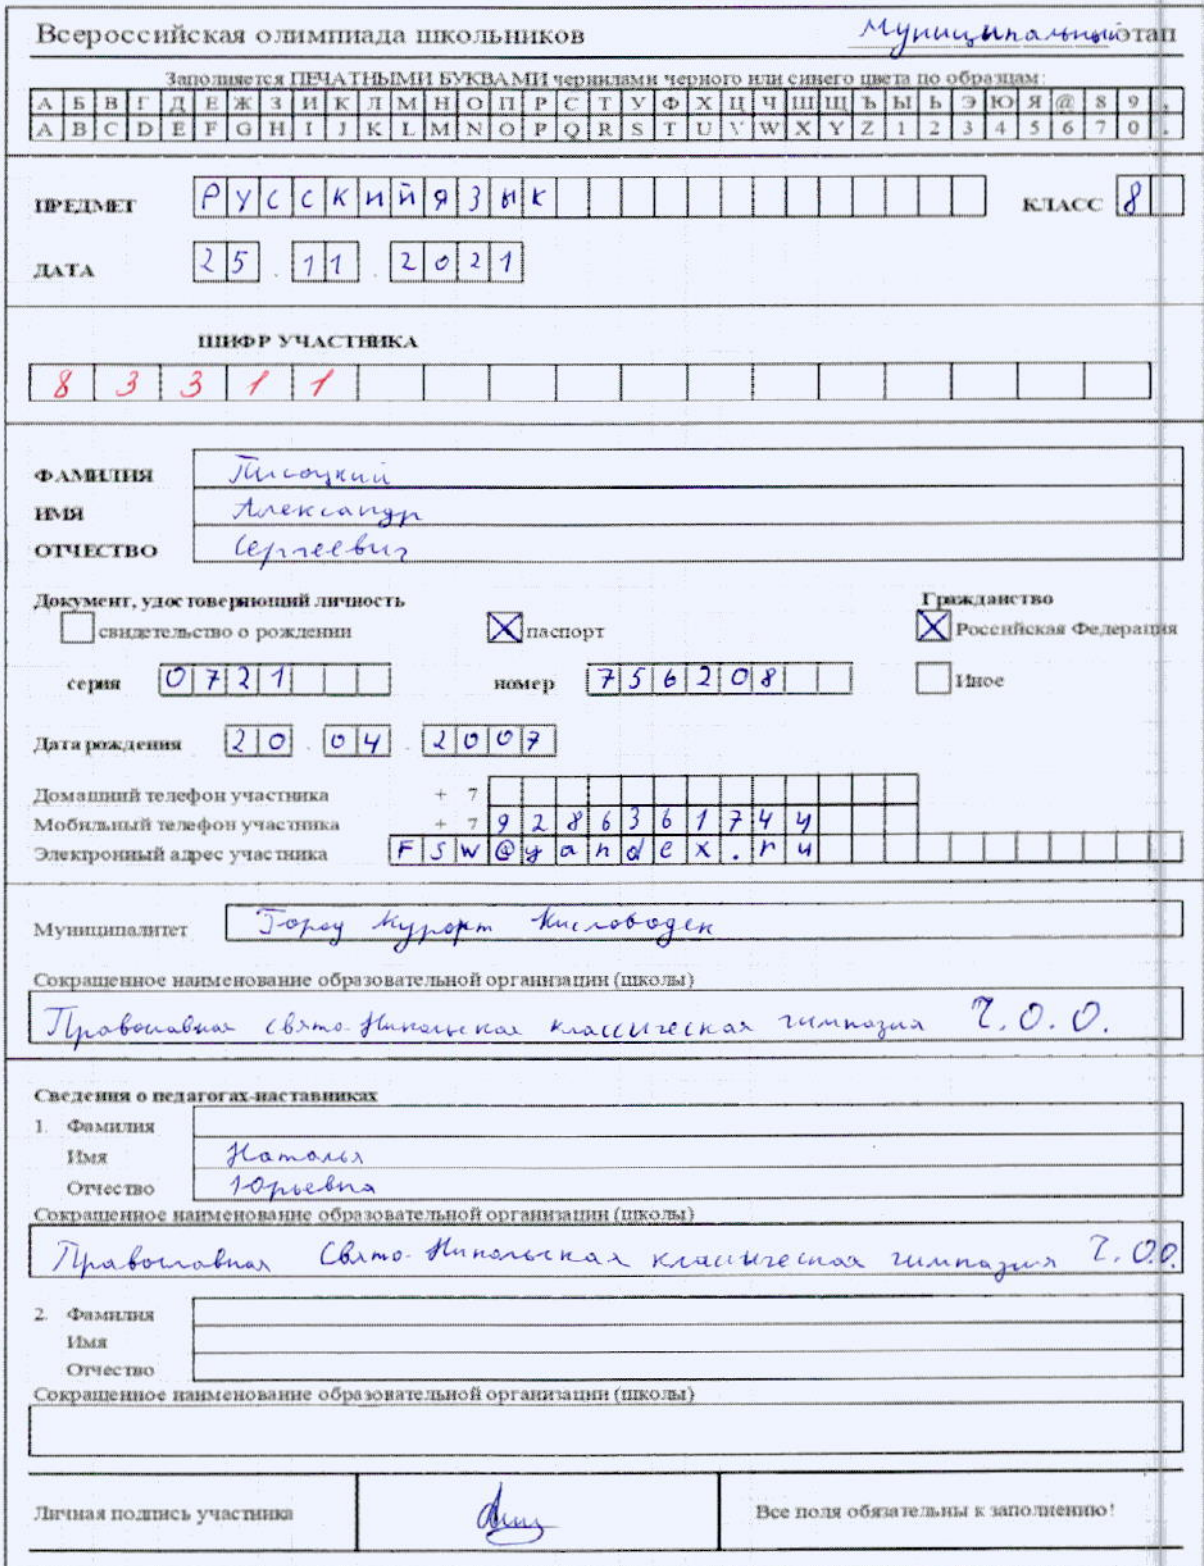 Всероссийская олимпиада школьников Муниципальный этап
Заполняется ПЕЧАТНЫМИ БУКВАМИ чернилами черного или синего цвета по образцам:
А Б В Г Д Е Ж З И К Л М Н О П Р С Т У Ф Х Ц Ч Ш Щ Ъ Ы Ь Э Ю Я @ 8 9 ,
A B C D E F G H I J K L M N O P Q R S T U V W X Y Z 1 2 3 4 5 6 7 0 .
ПРЕДМЕТ РУССКИЙЯЗЫК КЛАСС 8
ДАТА 25.11.2021
ШИФР УЧАСТНИКА
83311
ФАМИЛИЯ Писоцкий
ИМЯ Александр
ОТЧЕСТВО Сергеевич
Документ, удостоверяющий личность Гражданство
свидетельство о рождении паспорт Российская Федерация
серия 0721 номер 756208 Иное
Дата рождения 20.04.2007
Домашний телефон участника +7
Мобильный телефон участника +7 9286361744
Электронный адрес участника FSW@yandex.ru
Муниципалитет Город Курорт Кисловодск
Сокращенное наименование образовательной организации (школы)
Православная свято-Никольская классическая гимназия Ч.О.О.
Сведения о педагогах-наставниках
1. Фамилия
Имя Наталья
Отчество Юрьевна
Сокращенное наименование образовательной организации (школы)
Православная Свято-Никольская классическая гимназия Ч.О.О.
2. Фамилия
Имя
Отчество
Сокращенное наименование образовательной организации (школы)
Личная подпись участника Все поля обязательны к заполнению!